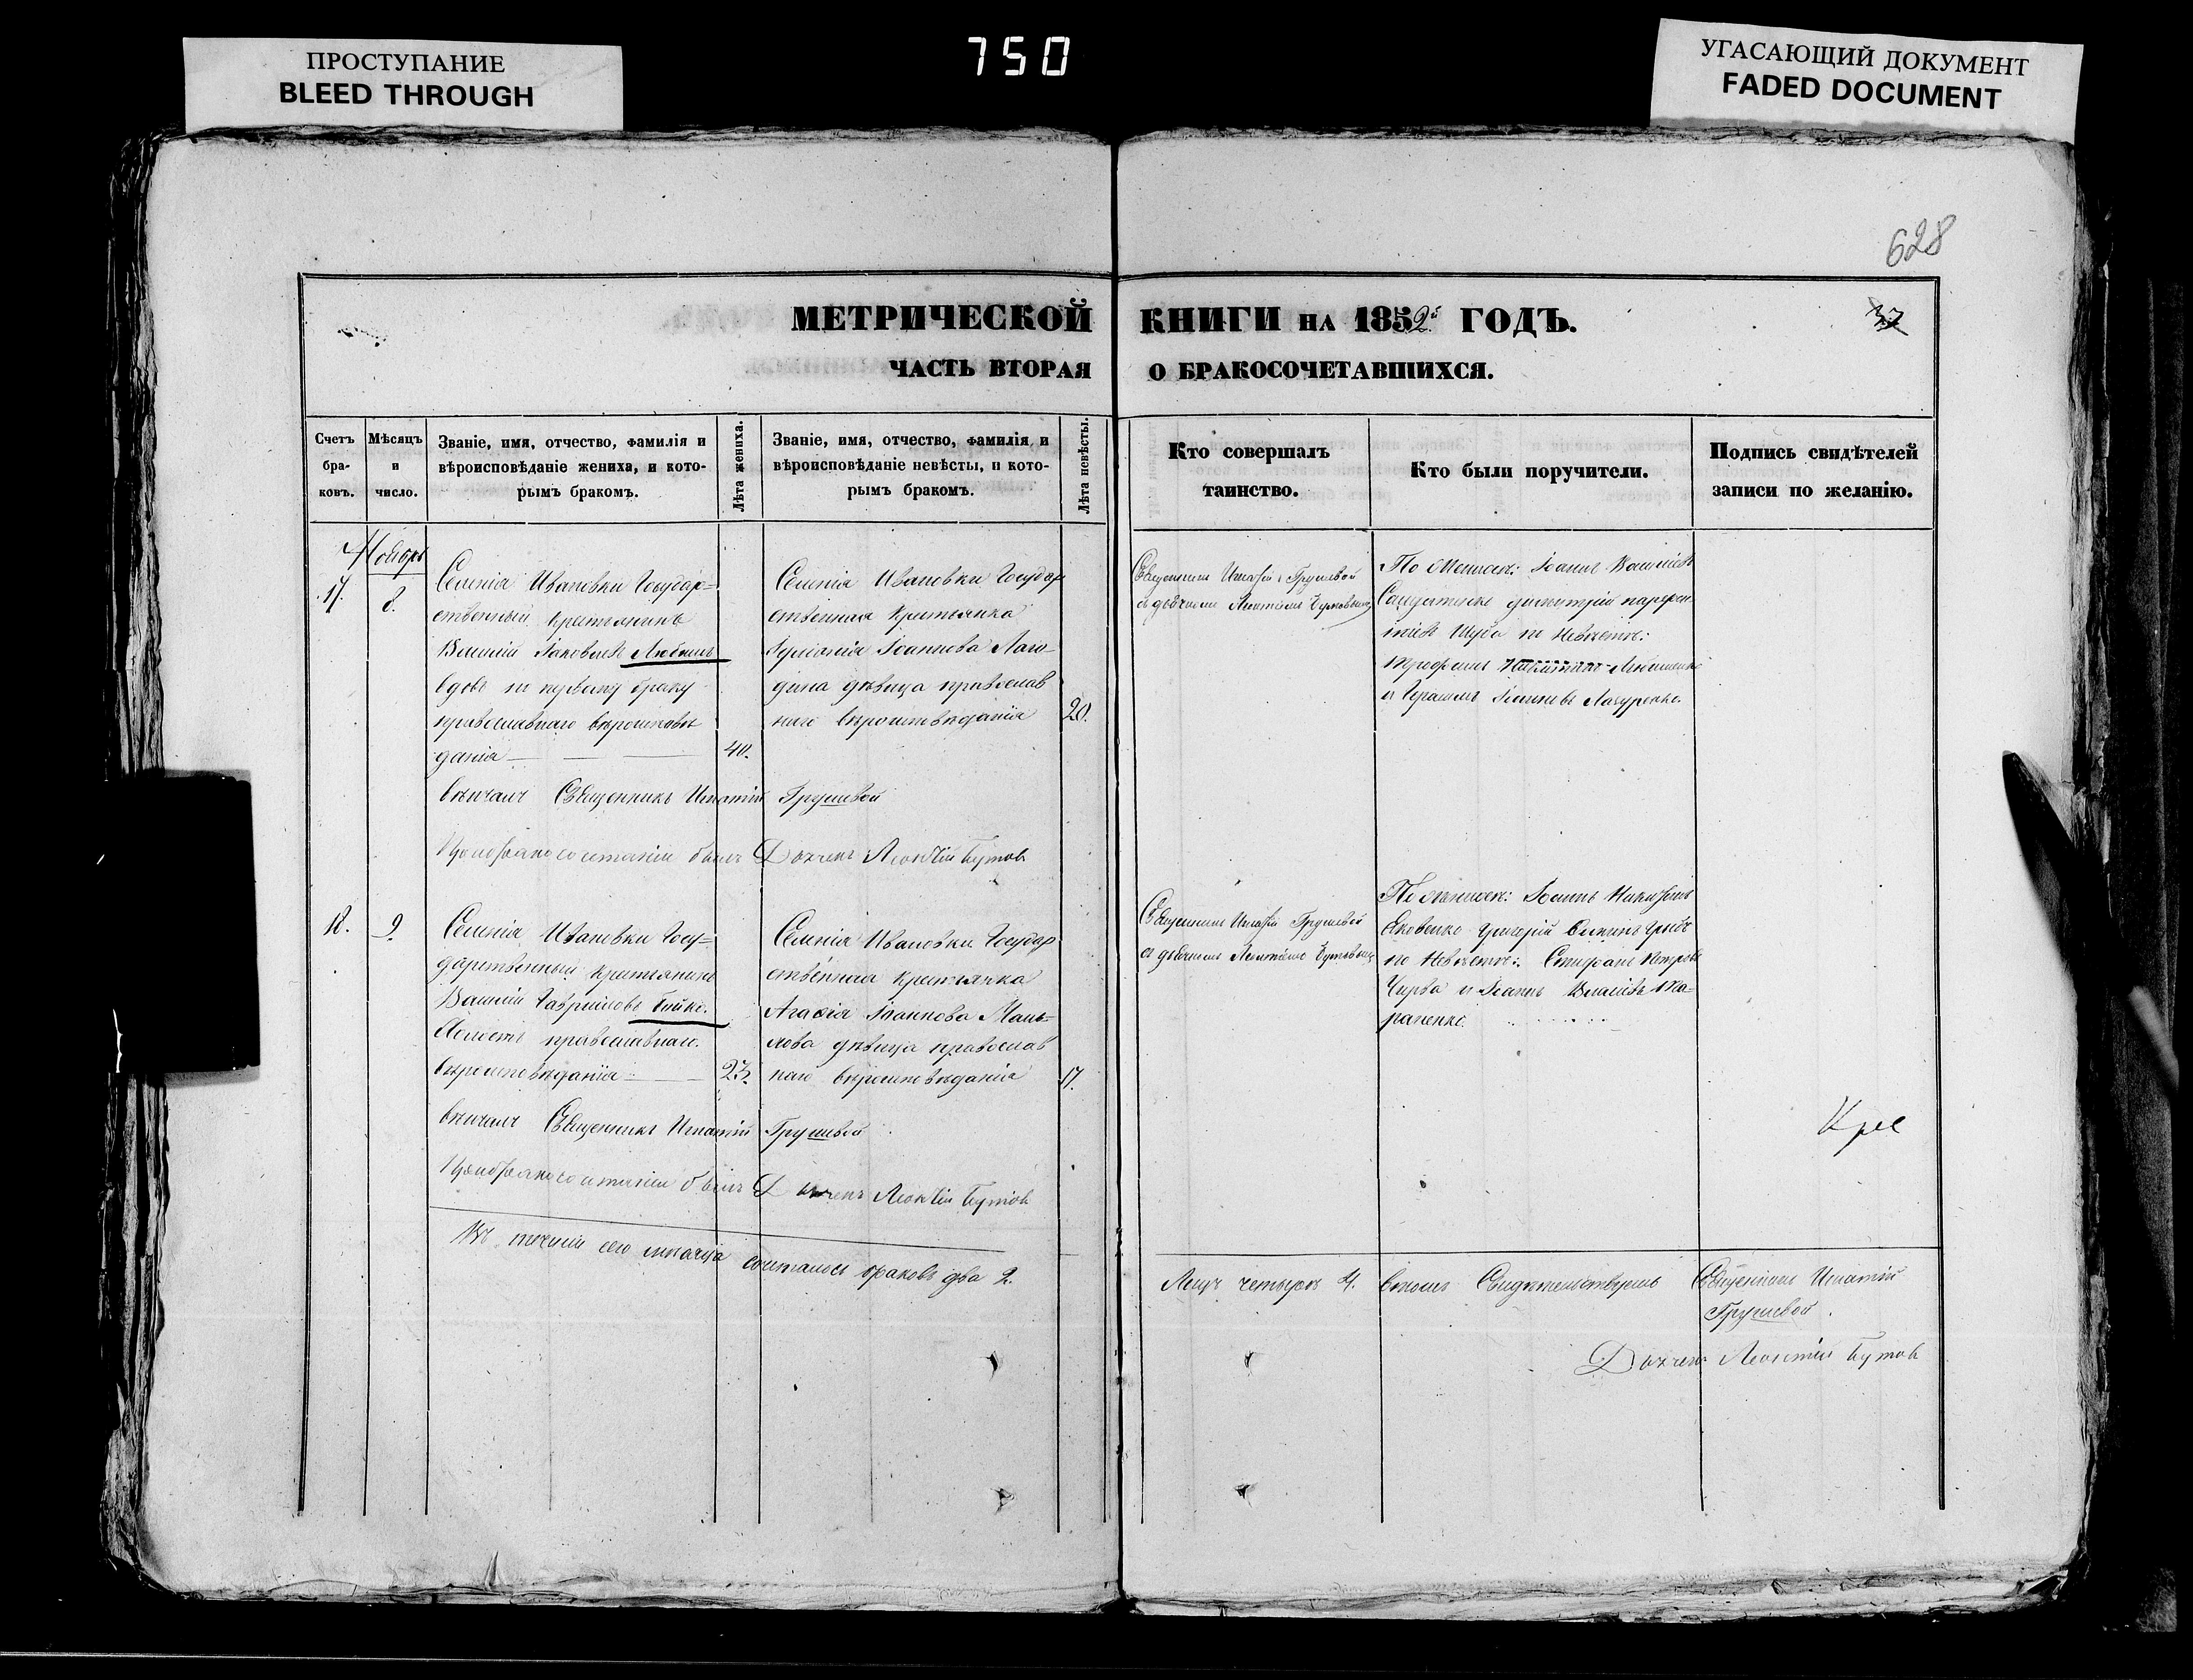 ПРОСТУПАНИЕ
BLEED THROUGH
750
УГАСАЮЩИЙ ДОКУМЕНТ
FADED DOCUMENT
628
МЕТРИЧЕСКОЙ КНИГИ НА 1852й ГОДЪ.
37
ЧАСТЬ ВТОРАЯ О БРАКОСОЧЕТАВШИХСЯ.
Счетъ браковъ.
Мѣсяцъ и число.
Званіе, имя, отчество, фамилія и
вѣроисповѣданіе жениха, и кото-
рымъ бракомъ.
Лѣта жениха.
Званіе, имя, отчество, фамилія и
вѣроисповѣданіе невѣсты, и кото-
рымъ бракомъ.
Лѣта невѣсты.
Кто совершалъ
таинство.
Кто были поручители.
Подпись свидѣтелей
записи по желанію.
Ноябрь
17.
8.
Селенія Ивановки Государ-
ственный крестьянинъ
Василій Іаковлевъ
вдовъ по первому браку
православнаго вѣроисповѣ
данія
40.
Селенія Ивановки Государ
ственная крестьянка
Іоаннова
дѣвица православ
наго вѣроисповѣданія
20.
Священникъ Игнатій Грушевой
съ дьячкомъ Леонтіемъ Бутовымъ
По Женихѣ: Іоаннъ
по Невѣстѣ:
Трофимъ
и Герасимъ
вѣнчалъ Священникъ Игнатій Грушевой
При бракосочетаніи былъ Дьячекъ Леонтій Бутовъ
18.
9
Селенія Ивановки Госу-
дарственный крестьянинъ
Василій Гавріиловъ Бойко.
Холостъ православнаго
вѣроисповѣданія
23.
Селенія Ивановки Государ
ственная крестьянка
Агафія Іоаннова
дѣвица православ
наго вѣроисповѣданія
17.
Священникъ Игнатій Грушевой
съ дьячкомъ Леонтіемъ Бутовымъ
По женихѣ: Іоаннъ
Яковенко Григорій
по Невѣстѣ: Стефанъ Петровъ
Чирва и Іоаннъ Власіевъ Та-
раненко.
вѣнчалъ Священникъ Игнатій Грушевой
При бракосочетаніи былъ Дьячекъ Леонтій Бутовъ
Крес
Въ теченіи сего мѣсяца сочеталось браковъ два 2.
Лицъ четыре 4. въ томъ Свидѣтельствуемъ Священникъ Игнатій
Грушевой.
Дьячекъ Леонтій Бутовъ